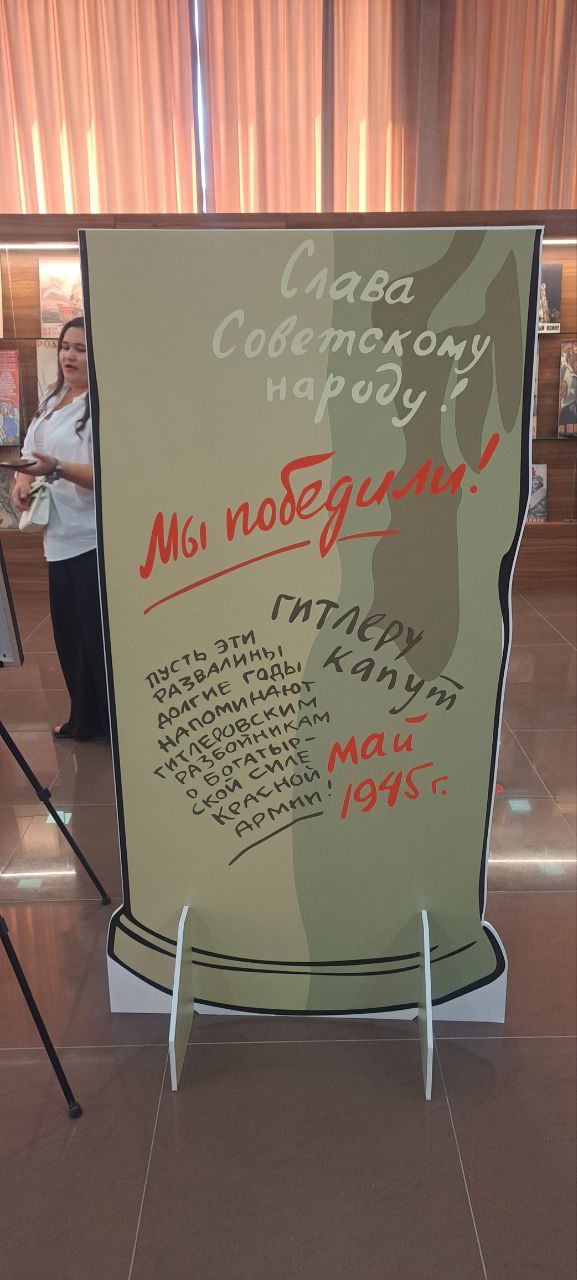 Слава
Советскому
народу!
Мы победили!
ГИТЛЕРУ
КАПУТ
ПУСТЬ ЭТИ
РАЗВАЛИНЫ
ДОЛГИЕ ГОДЫ
НАПОМИНАЮТ
ГИТЛЕРОВСКИМ
РАЗБОЙНИКАМ
О БОГАТЫР-
СКОЙ СИЛЕ
КРАСНОЙ
АРМИИ!
МАЙ
1945 г.